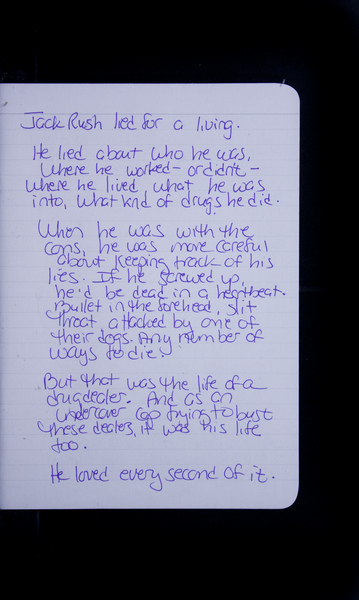 Jack Rush lied for a living.
He lied about who he was,
where he worked - or didn't -
where he lived, what he was
into, what kind of drugs he did.
When he was with the
cons, he was more careful
about keeping track of his
lies. If he screwed up,
he'd be dead in a heartbeat.
Bullet in the forehead, slit
throat, attacked by one of
their dogs. Any number of
ways to die.
But that was the life of a
drug dealer. And as an
undercover cop trying to bust
these dealers, it was his life
too.
He loved every second of it.